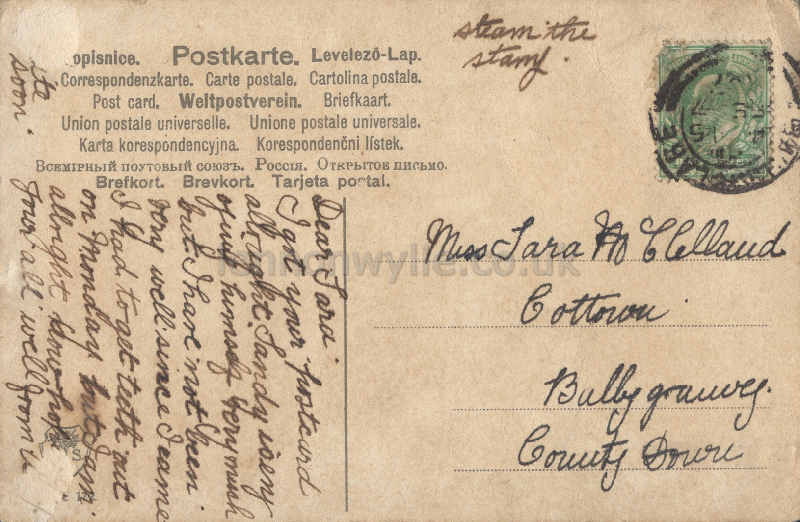 steam the
stamp.
opisnice. Postkarte. Levelező-Lap.
Correspondenzkarte. Carte postale. Cartolina postale.
Post card. Weltpostverein. Briefkaart.
Union postale universelle. Unione postale universale.
Karta korespondencyjna. Korespondenční lístek.
Всемірный почтовый союзъ. Россія. Открытое письмо.
Brefkort. Brevkort. Tarjeta postal.
Miss Sara McClelland
Cottown
Ballygranvey.
County Down
Dear Sara
I got your postcard
allright. Sandy is
himself very much
but I have not been
very well since I came
I had to get teeth out
on Monday but I am
allright now hop
your all well from
soon.
lennonwylie.co.uk